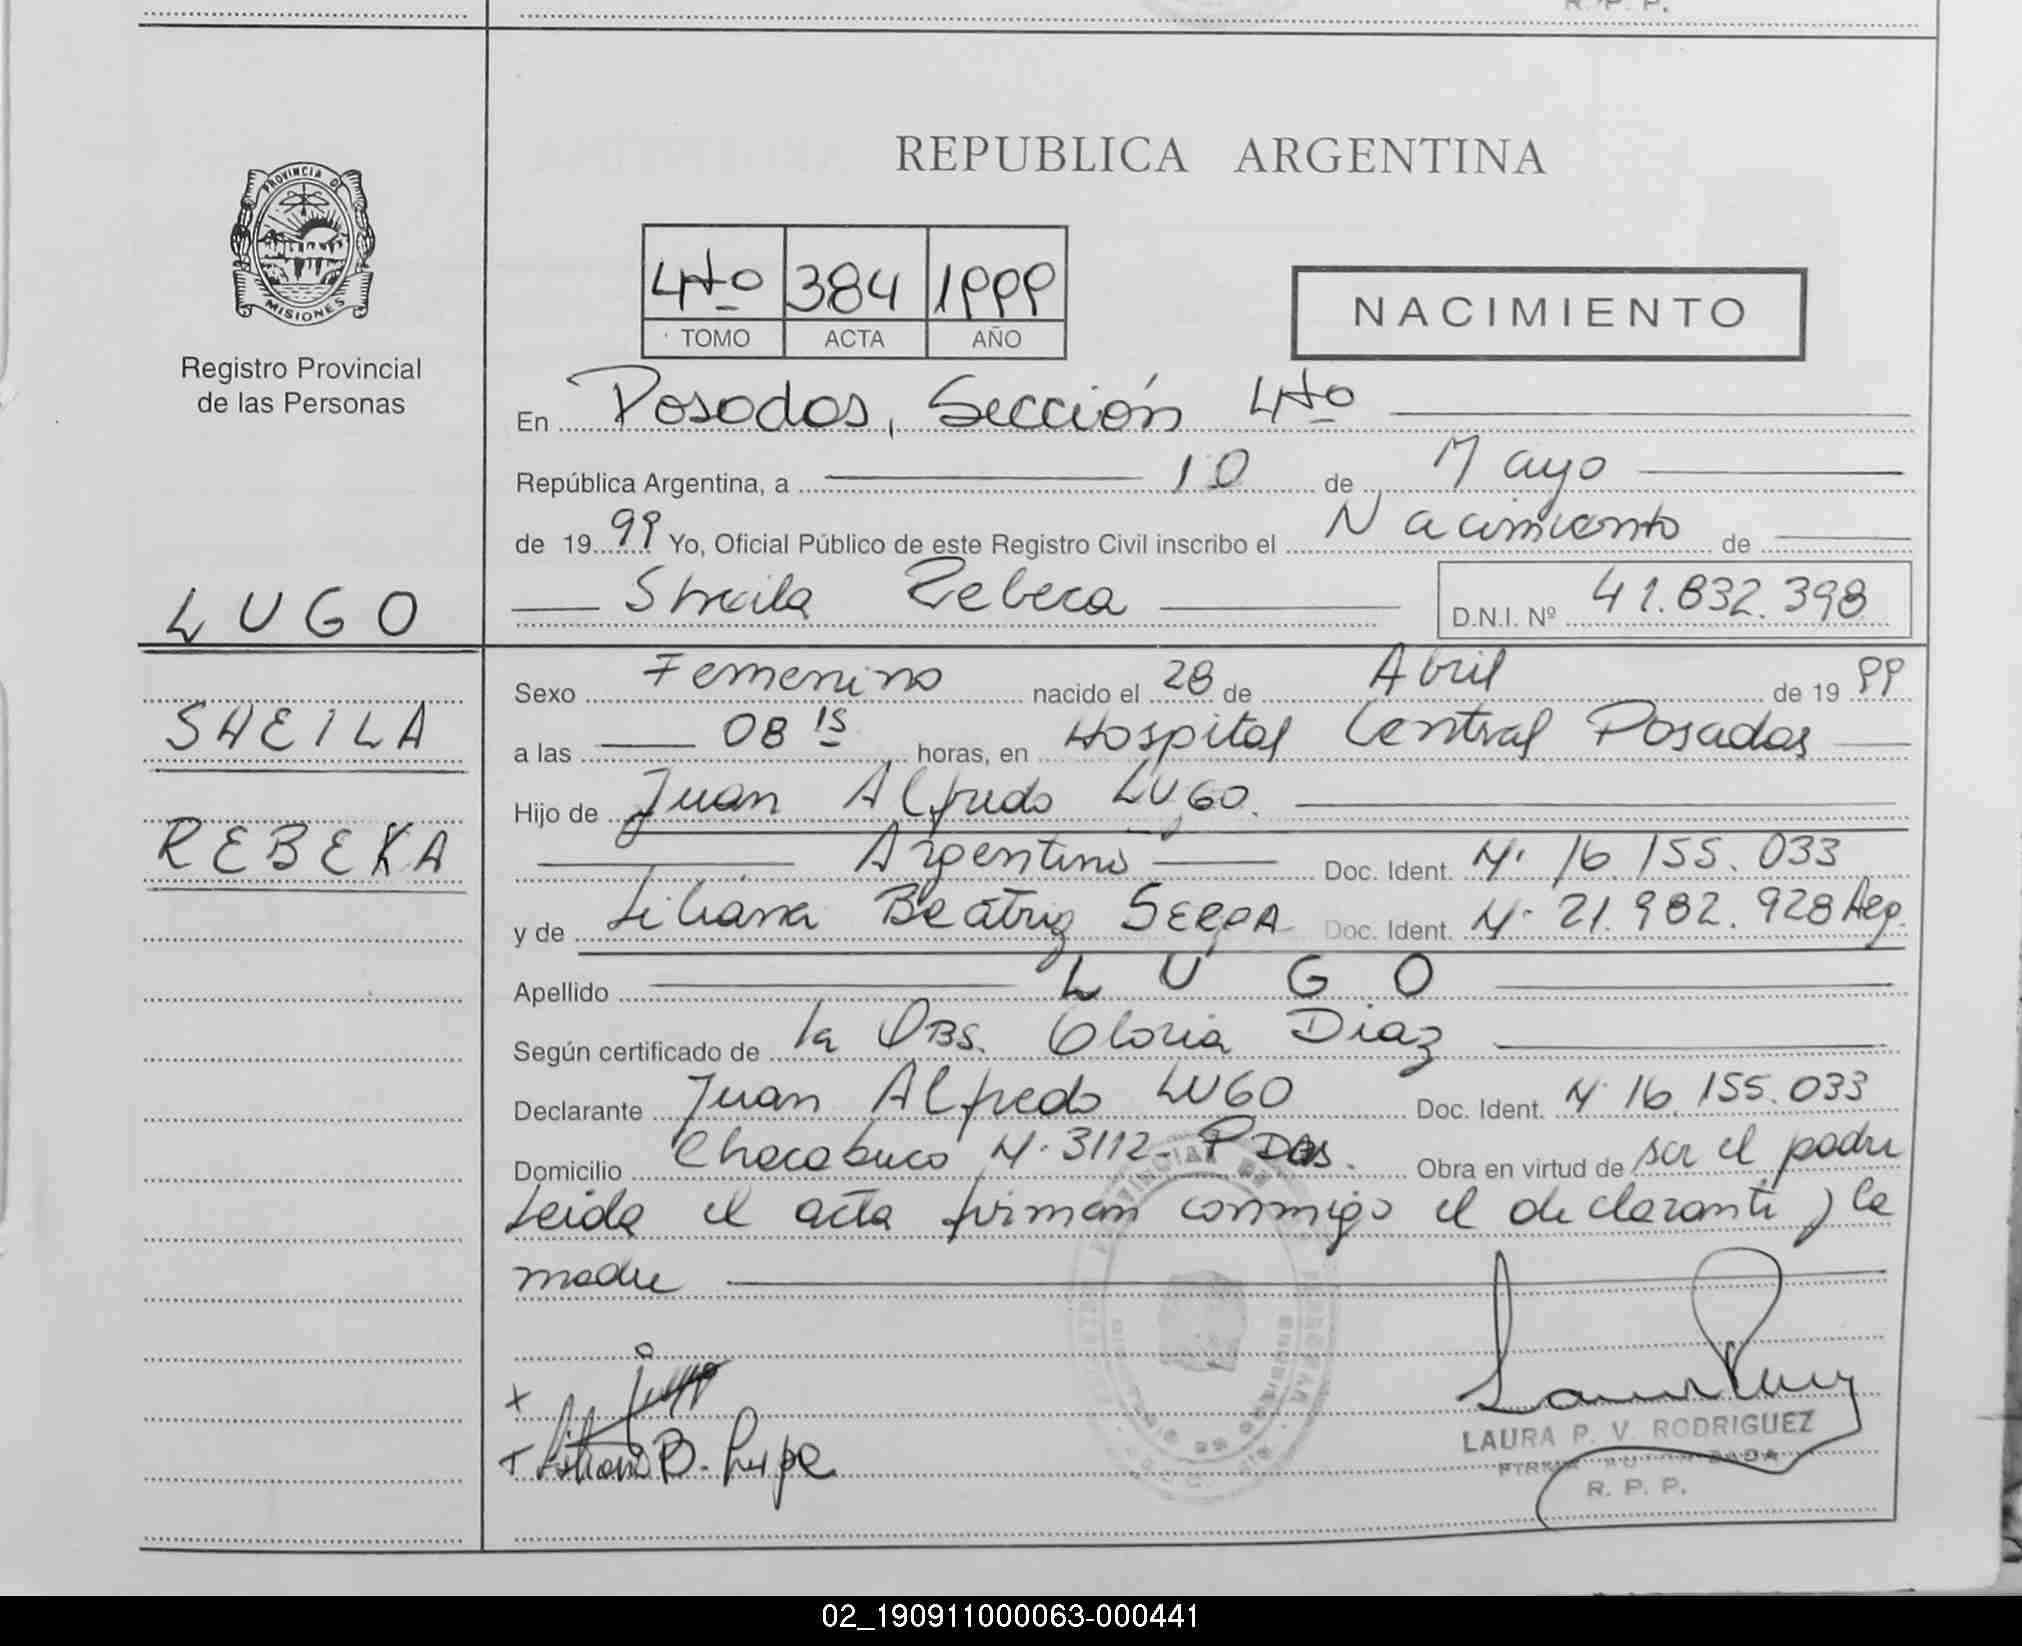 R. P. P.
PROVINCIA DE
MISIONES
Registro Provincial
de las Personas
LUGO
SHEILA
REBEKA
REPUBLICA ARGENTINA
4to 384 1999
TOMO ACTA AÑO
NACIMIENTO
En Posadas, Sección 4to
República Argentina, a 10 de Mayo
de 1999 Yo, Oficial Público de este Registro Civil inscribo el Nacimiento de
Sheila Rebeca D.N.I. Nº 41.832.398
Sexo Femenino nacido el 28 de Abril de 1999
a las 08 15 horas, en Hospital Central Posadas
Hijo de Juan Alfredo LUGO.
Argentino Doc. Ident. Nº 16.155.033
y de Liliana Beatriz SERPA Doc. Ident. Nº 21.982.928 Arg.
Apellido LUGO
Según certificado de la OBS. Gloria Diaz
Declarante Juan Alfredo LUGO Doc. Ident. Nº 16.155.033
Domicilio Chacabuco Nº 3112 - PDAS. Obra en virtud de ser el padre
Leida el acta firman conmigo el declarante y la
madre
LAURA P. V. RODRIGUEZ
FIRMA AUTORIZADA
R. P. P.
02_190911000063-000441